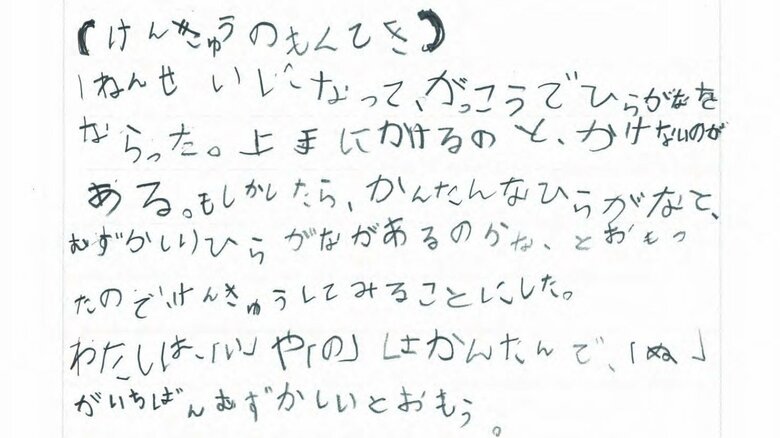 (けんきゅうのもんてき)
1ねんせいになって、がっこうでひらがなを
ならった。上手にかけるのと、かけないのが
ある。もしかしたら、かんたんなひらがなと、
むずかしいひらがながあるのかな、とおもっ
たので、けんきゅうしてみることにした。
わたしは、「い」や「の」はかんたんで、「ぬ」
がいちばんむずかしいとおもう。